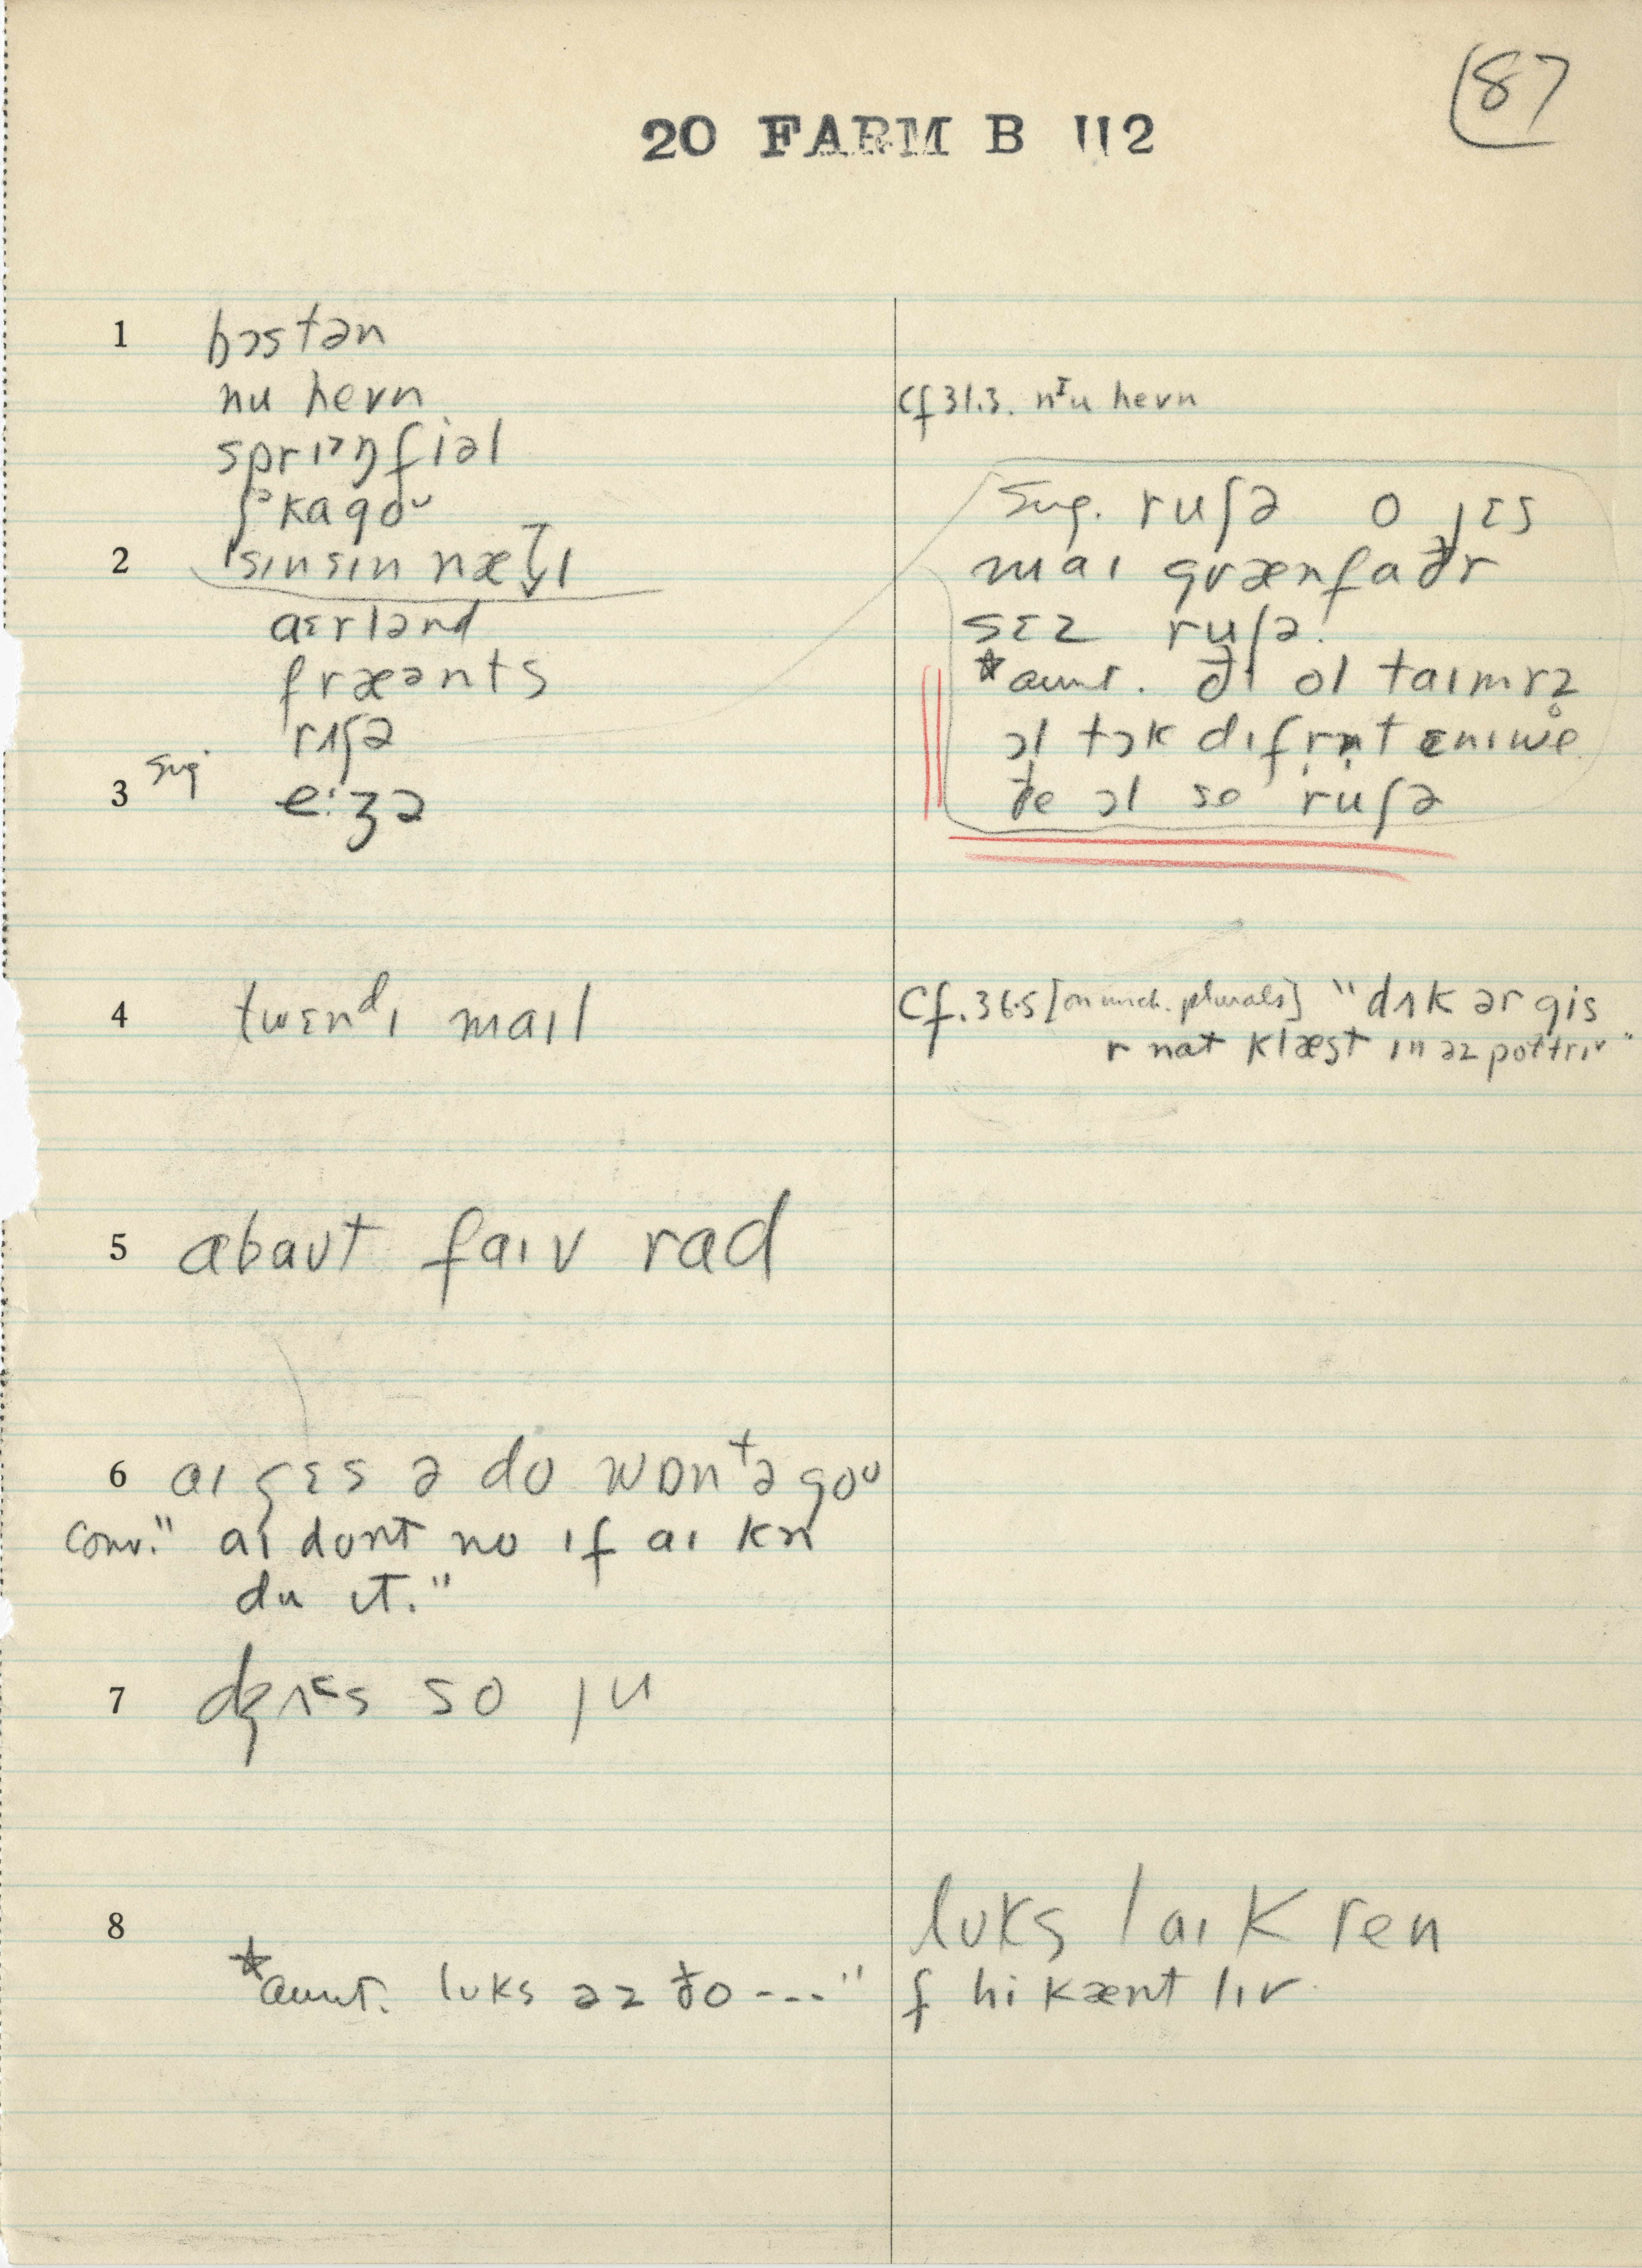 87
20 FARM B 112
1 bɔstən
nu hevn
Cf 31.3. nᴵu hevn
sprɪᵊŋfiəl
ʃᵊkagoᶷ
2 sɪnsɪn næTɪ
aɛrlənd
fræənts
rʌʃə
3 sug e:ʒə
Sug. ruʃə o jɛs
maɪ grænfaðr
sɛz ruʃə.
*aunt. ðɪ ol taɪmrz
ɔl tɔk dɪfrnt ɛnɪwe
ðe ɔl so ruʃə
4 twɛndɪ maɪl
Cf. 36.5 [on unch. plurals] "dʌk ər gis
r nat klæst ɪn əz poʊtrɪ"
5 əbaʊt faɪv rad
6 aɪ gɛs ə do wɒntə goᶷ
Conv. "aɪ dont no ɪf aɪ kn
du ɪt."
7 dʒʌs so ju
8 lʊks laɪk ren
*aunt. lʊks əz ðo ---" f hi kænt lɪv